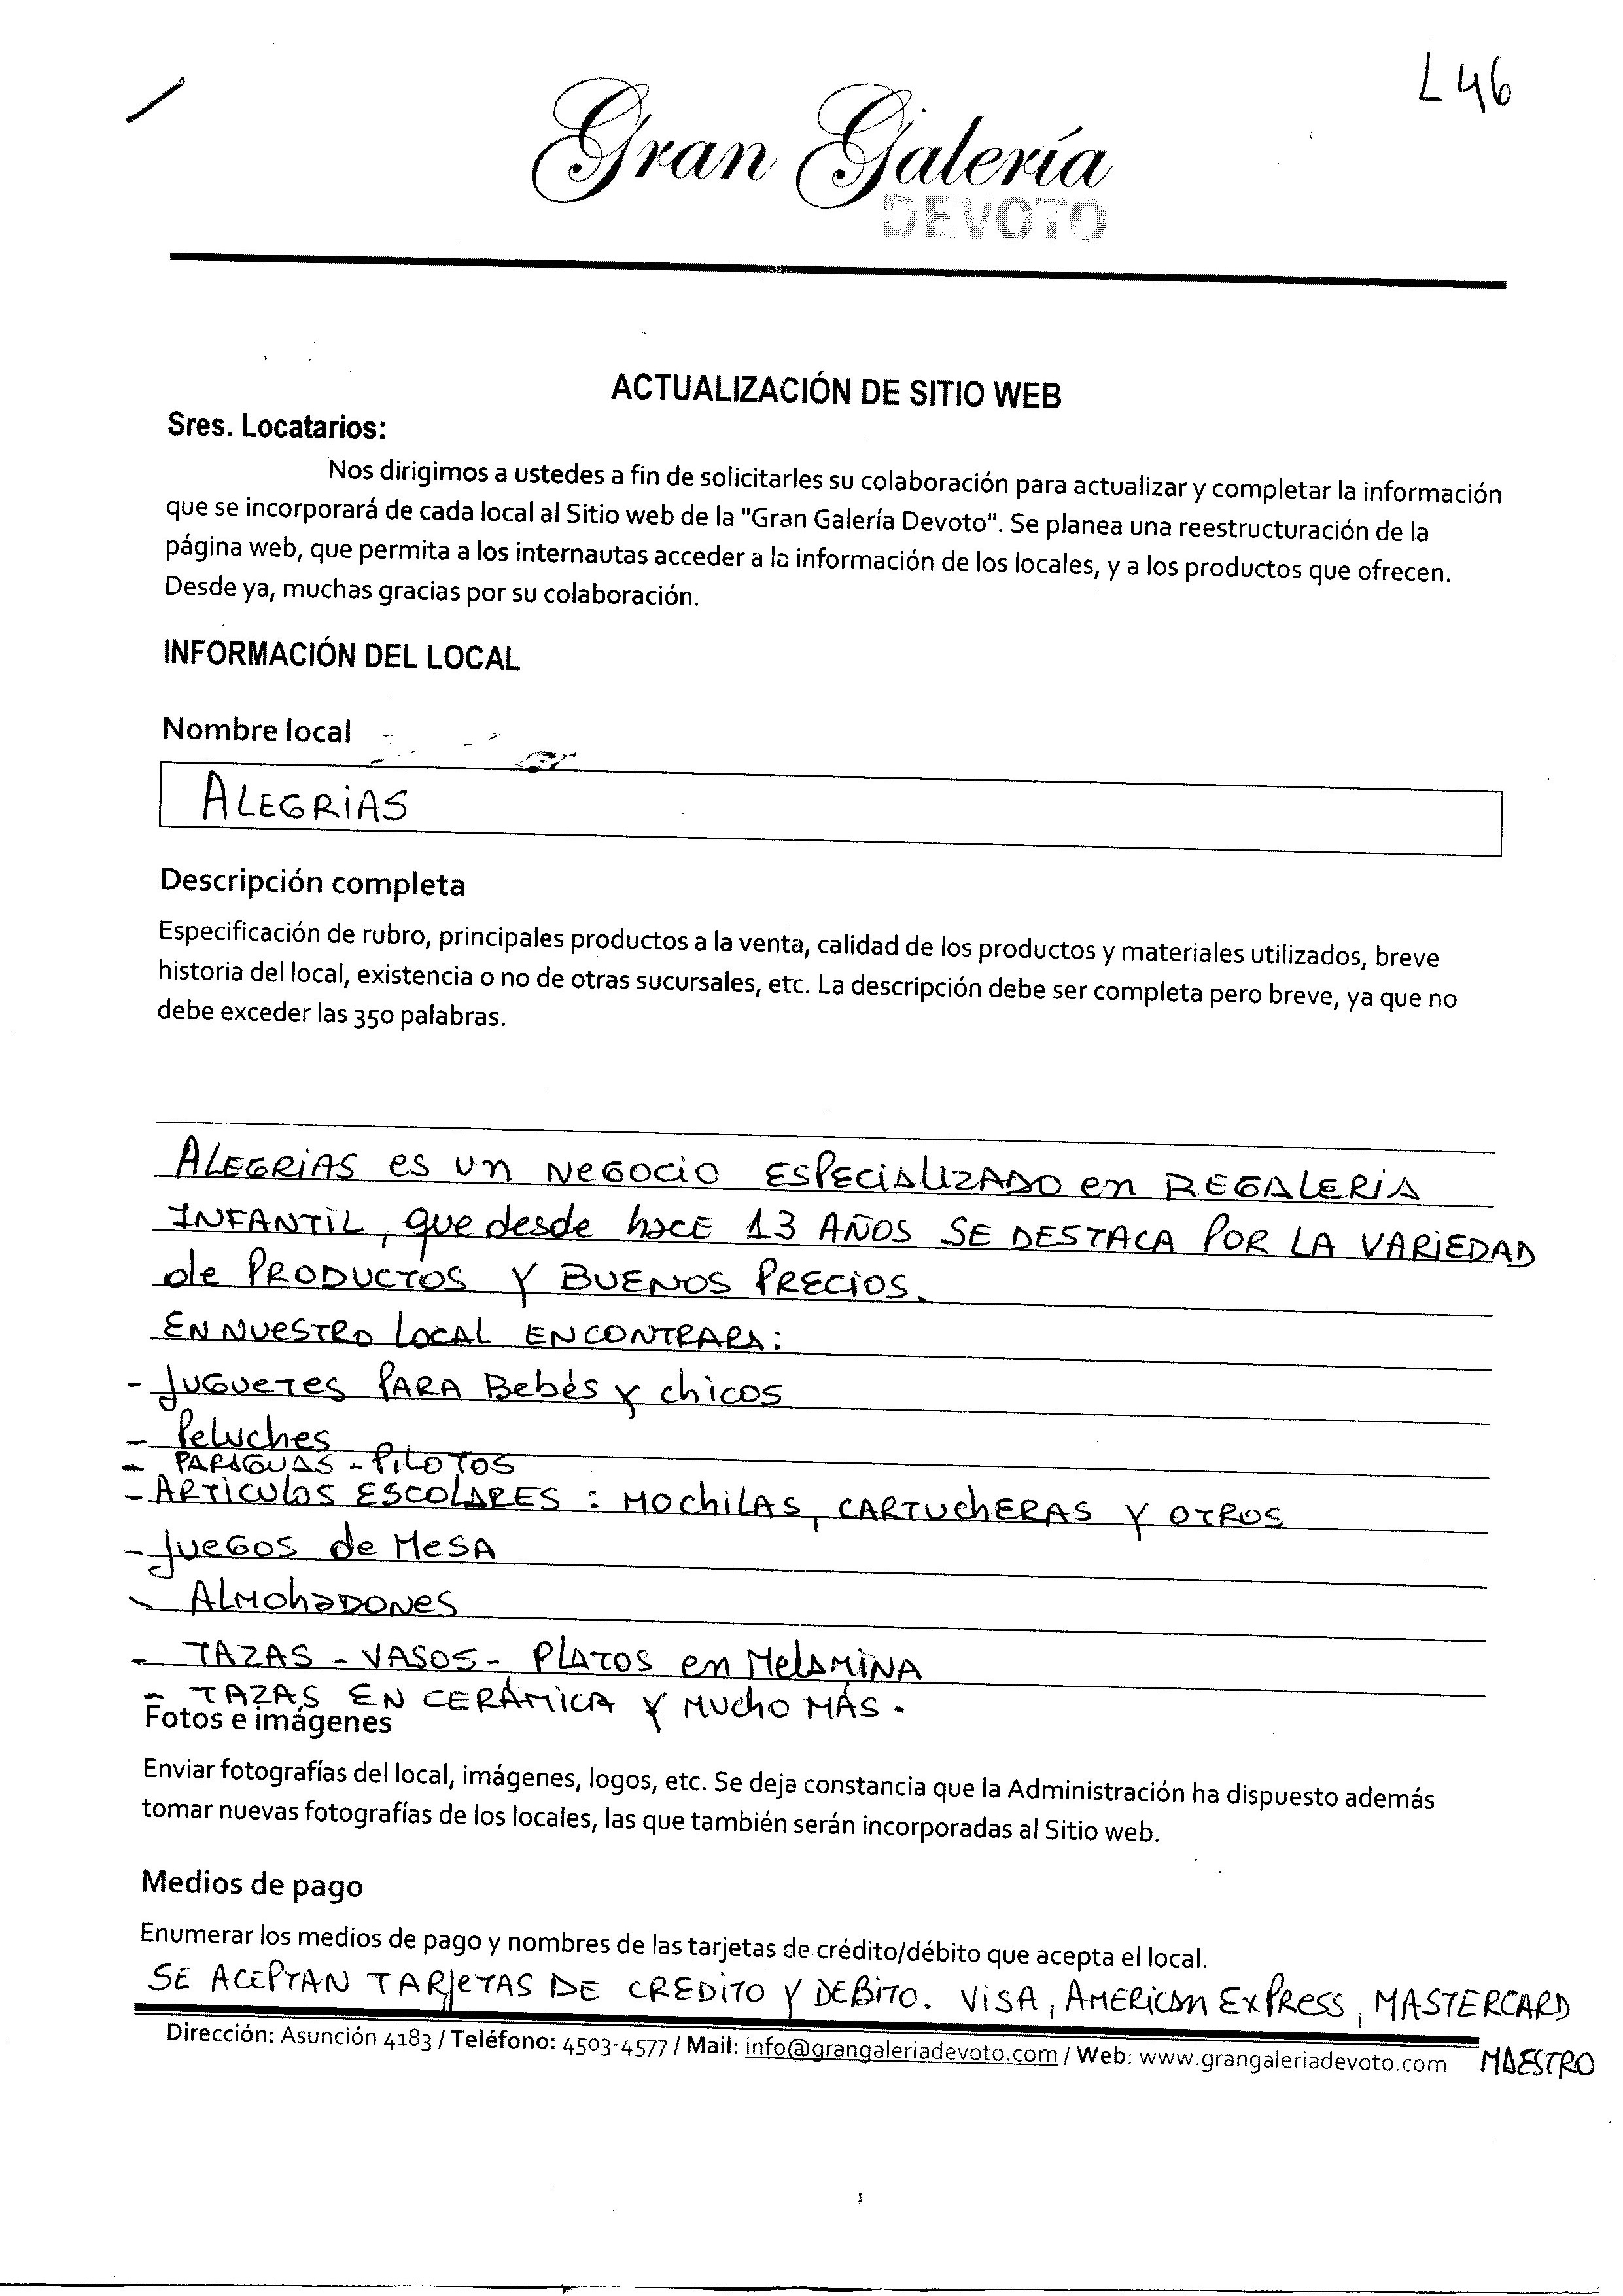 L 46
Gran Galería
DEVOTO
ACTUALIZACIÓN DE SITIO WEB
Sres. Locatarios:
Nos dirigimos a ustedes a fin de solicitarles su colaboración para actualizar y completar la información
que se incorporará de cada local al Sitio web de la "Gran Galería Devoto". Se planea una reestructuración de la
página web, que permita a los internautas acceder a la información de los locales, y a los productos que ofrecen.
Desde ya, muchas gracias por su colaboración.
INFORMACIÓN DEL LOCAL
Nombre local
ALEGRIAS
Descripción completa
Especificación de rubro, principales productos a la venta, calidad de los productos y materiales utilizados, breve
historia del local, existencia o no de otras sucursales, etc. La descripción debe ser completa pero breve, ya que no
debe exceder las 350 palabras.
ALEGRIAS es un NEGOCIO ESPECIALIZADO en REGALERIA
INFANTIL, que desde hace 13 AÑOS SE DESTACA POR LA VARIEDAD
de PRODUCTOS Y BUENOS PRECIOS.
EN NUESTRO LOCAL ENCONTRARA:
- JUGUETES PARA Bebés y chicos
- Peluches
- PARAGUAS - PILOTOS
- ARTICULOS ESCOLARES : MOCHILAS, CARTUCHERAS Y OTROS
- JUEGOS de MESA
- ALMOHADONES
- TAZAS - VASOS - PLATOS en MELAMINA
- TAZAS EN CERÁMICA Y MUCHO MÁS.
Fotos e imágenes
Enviar fotografías del local, imágenes, logos, etc. Se deja constancia que la Administración ha dispuesto además
tomar nuevas fotografías de los locales, las que también serán incorporadas al Sitio web.
Medios de pago
Enumerar los medios de pago y nombres de las tarjetas de crédito/débito que acepta el local.
SE ACEPTAN TARJETAS DE CREDITO Y DEBITO. VISA, AMERICAN EXPRESS, MASTERCARD
MAESTRO
Dirección: Asunción 4183 / Teléfono: 4503-4577 / Mail: info@grangaleriadevoto.com / Web: www.grangaleriadevoto.com